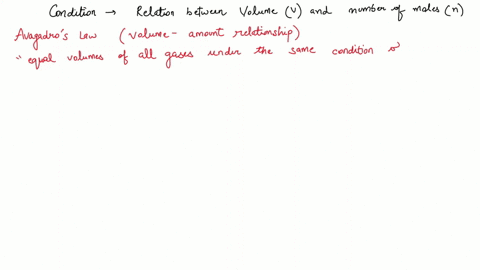 Condition → Relation between Volume (V) and number of moles (n)
Avagadro's Law (volume - amount relationship)
" equal volumes of all gases under the same condition o